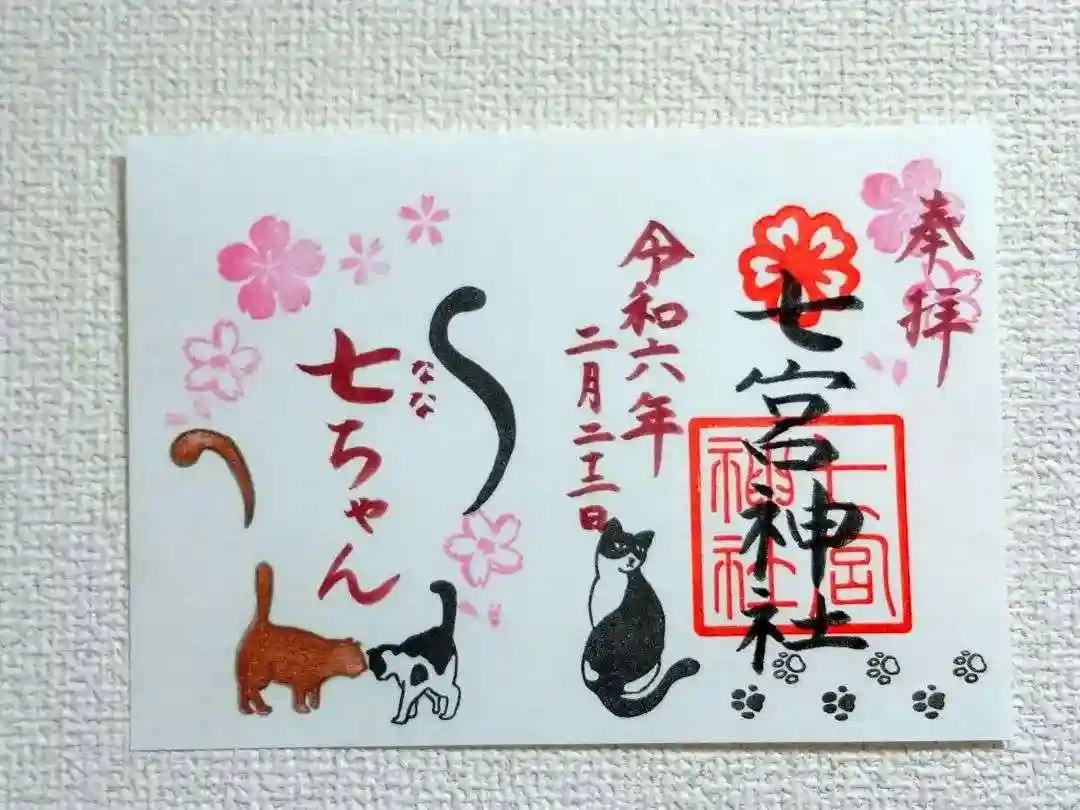 奉拝
七宮神社
七宮
神社
令和六年
二月二十二日
七ちゃん
なな